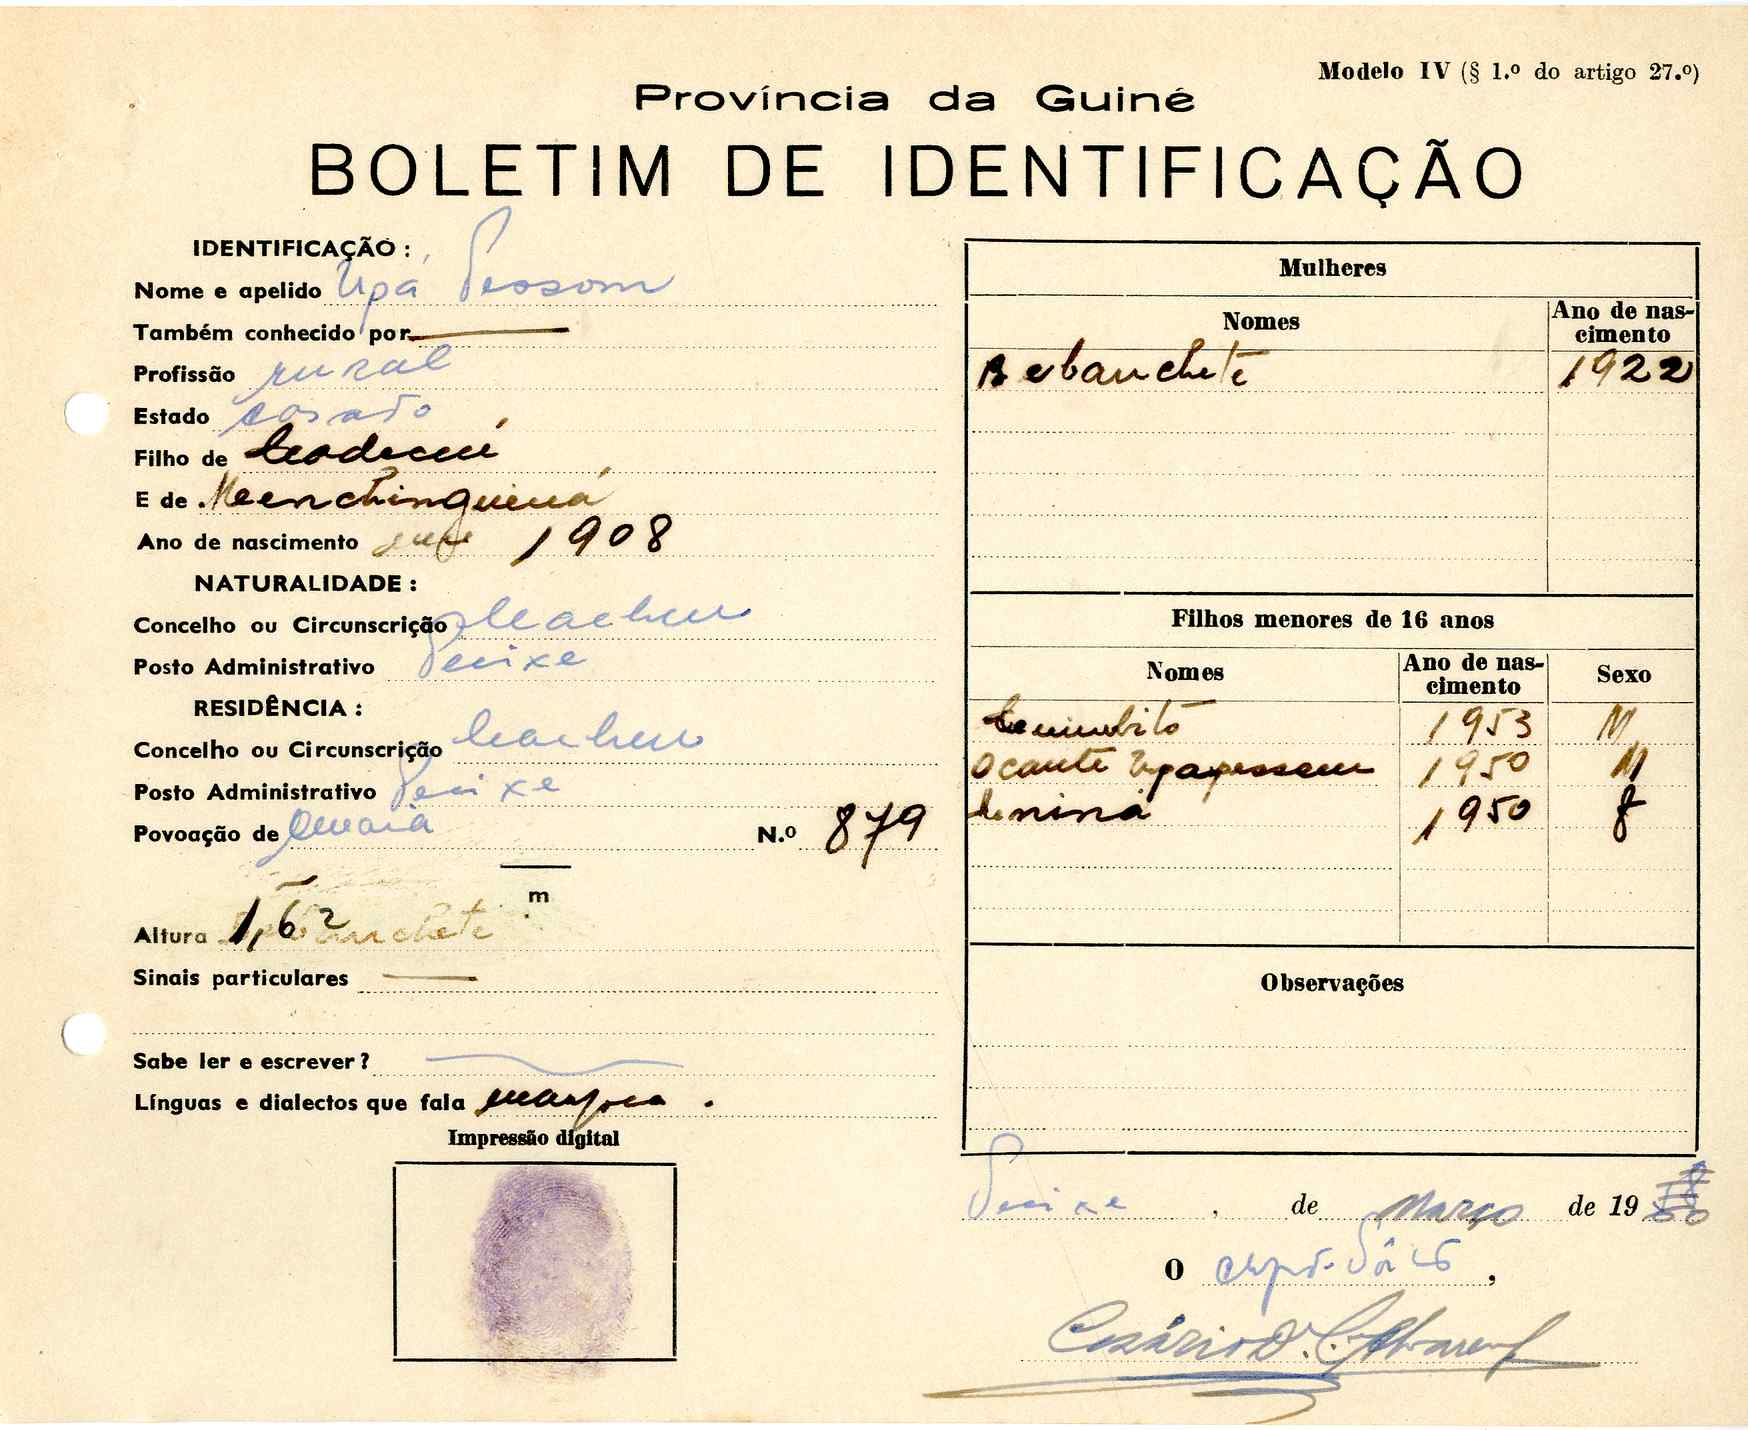 Modelo IV (§ 1.º do artigo 27.º)
Província da Guiné
BOLETIM DE IDENTIFICAÇÃO
IDENTIFICAÇÃO :
Nome e apelido Upá Pessom
Também conhecido por
Profissão rural
Estado casado
Filho de
E de
Ano de nascimento 1908
NATURALIDADE :
Concelho ou Circunscrição Cacheu
Posto Administrativo Pecixe
RESIDÊNCIA :
Concelho ou Circunscrição Cacheu
Posto Administrativo Pecixe
Povoação de N.º 879
m
Altura 1,62
Sinais particulares
Sabe ler e escrever ?
Línguas e dialectos que fala
Impressão digital
Mulheres
Nomes Ano de nas-
cimento
1922
Filhos menores de 16 anos
Nomes Ano de nas-
cimento Sexo
1953 M
Ocante 1950 M
1950 f
Observações
Pecixe , de Março de 19
O
Cesário D. C. Alvarenga